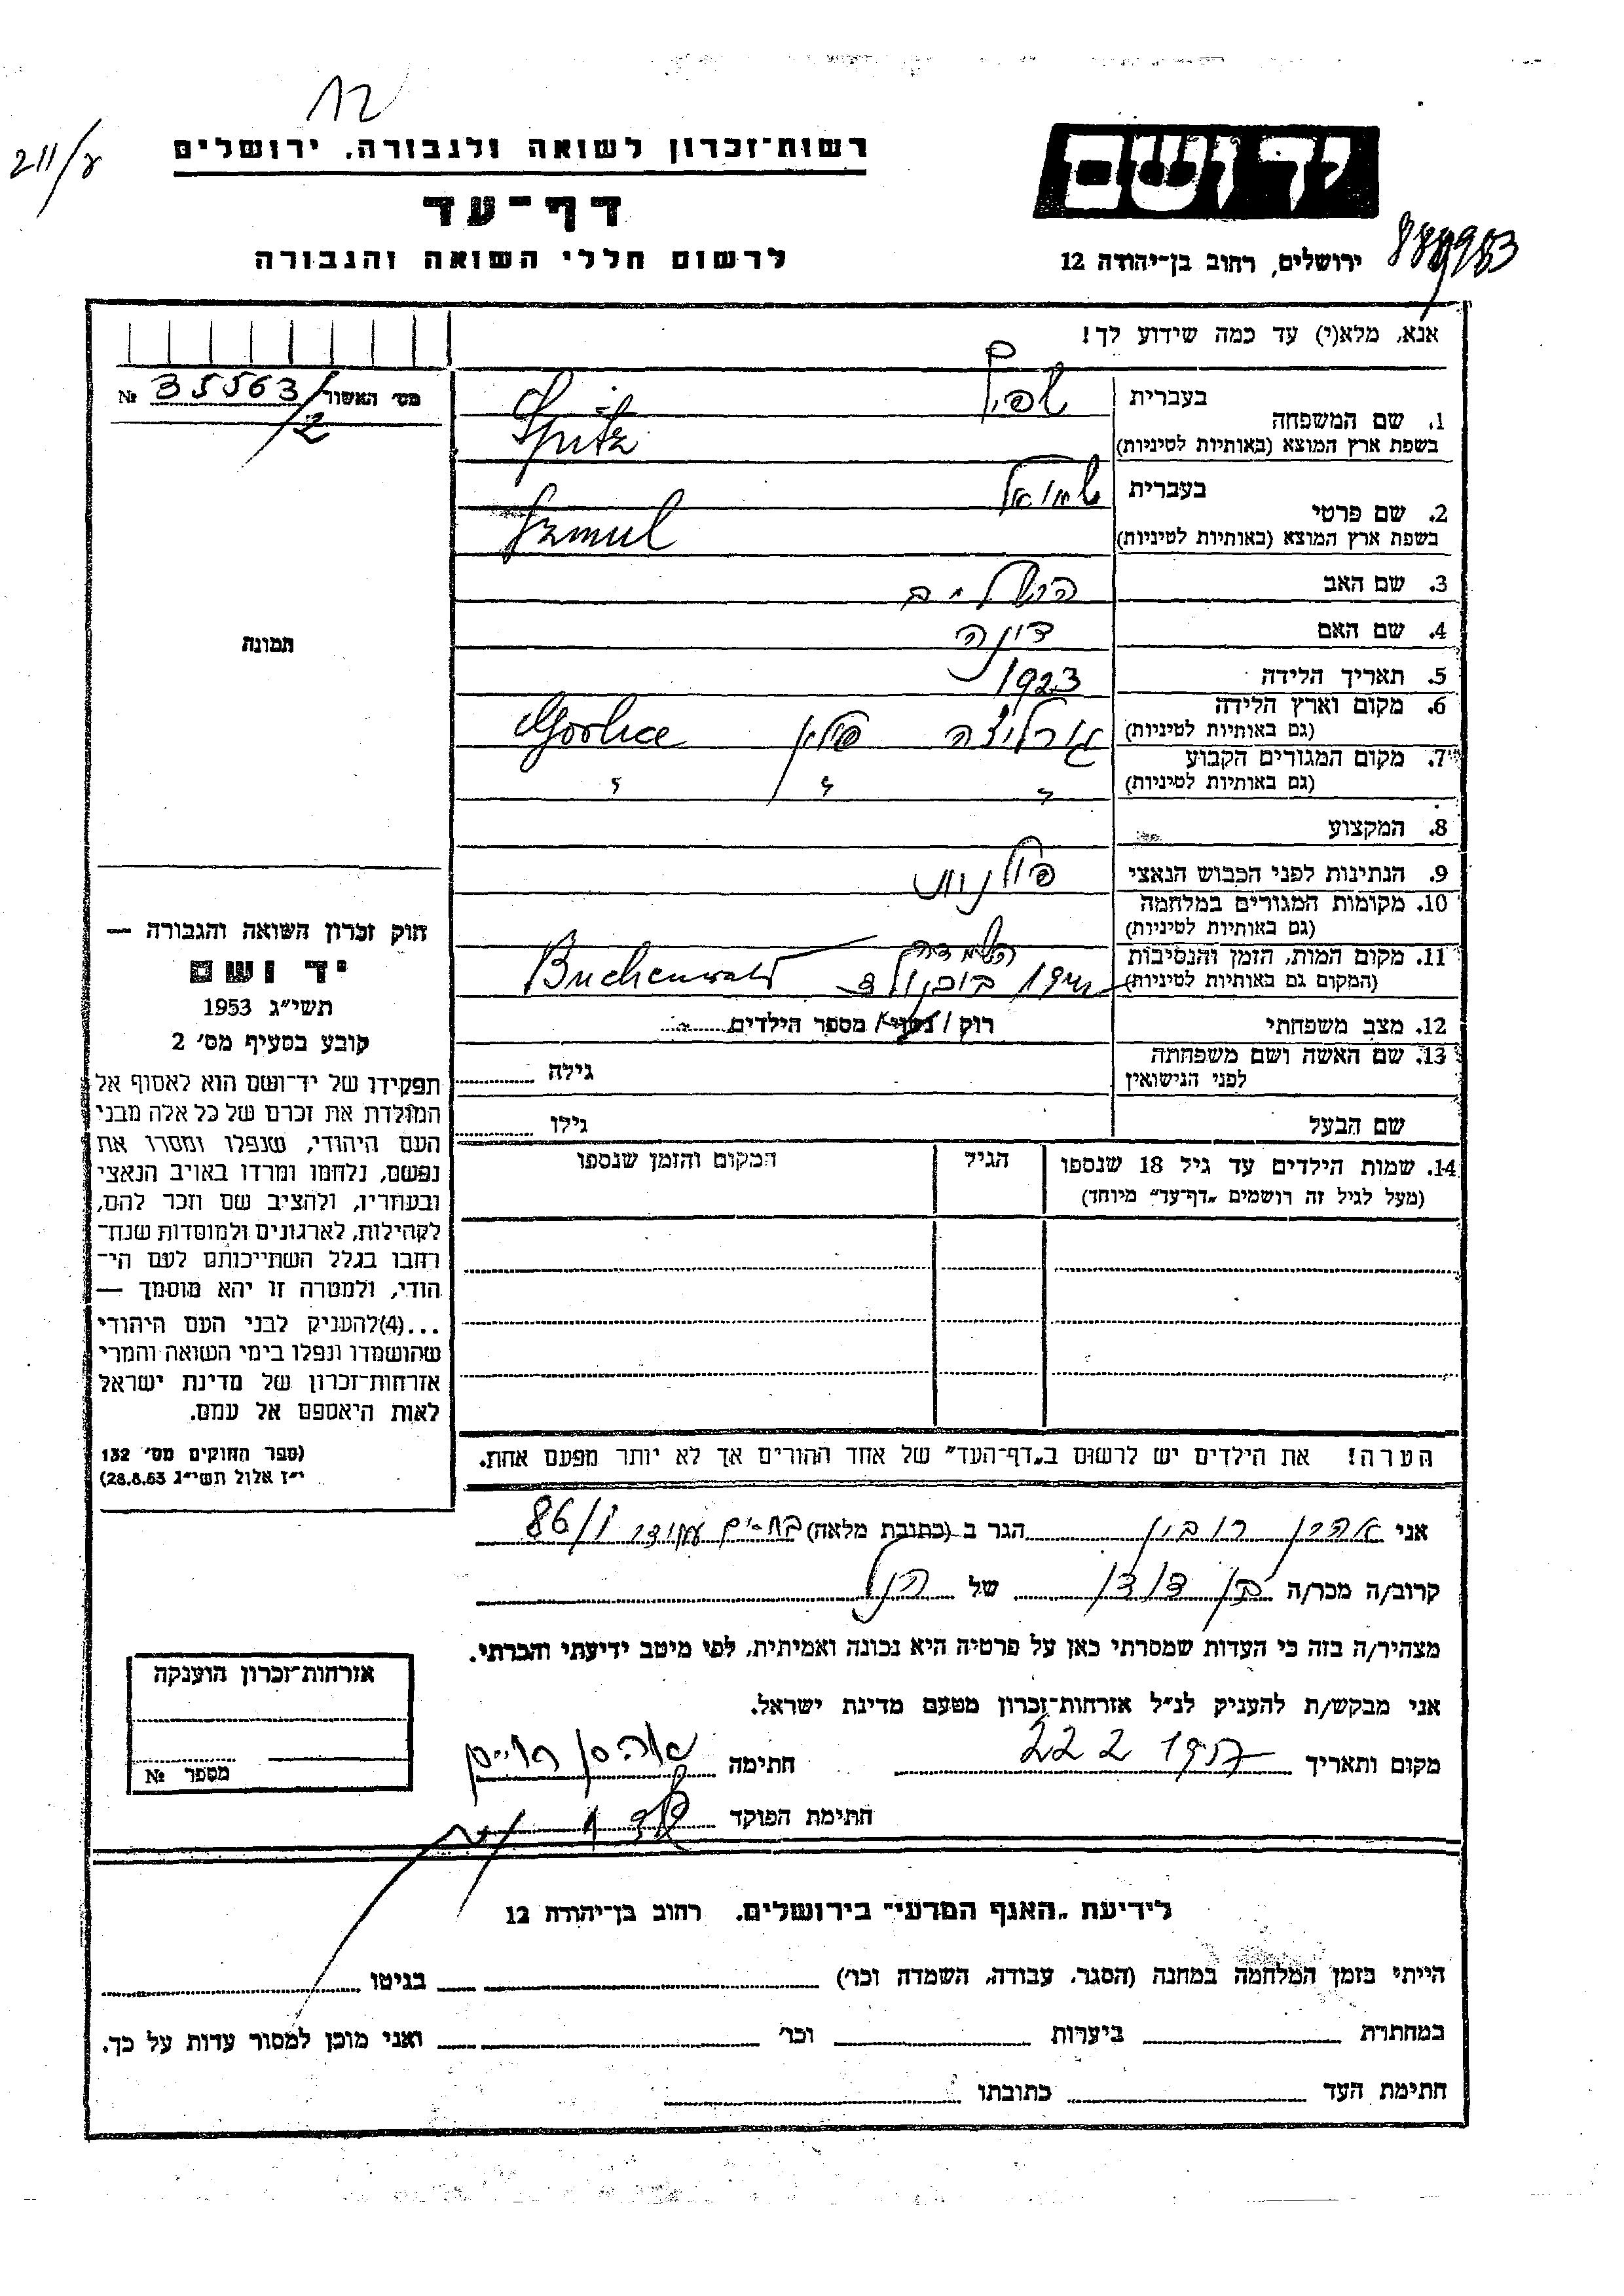 12
211/ע
רשות־זכרון לשואה ולגבורה. ירושלים
דף־עד
לרשום חללי השואה והגבורה
יד ושם
ירושלים, רחוב בן־יהודה 12
אנא, מלא(י) עד כמה שידוע לך!
מס׳ האשור № 35563/2
1. שם המשפחה
בעברית
בשפת ארץ המוצא (באותיות לטיניות) Spitz
2. שם פרטי
בעברית שמואל
בשפת ארץ המוצא (באותיות לטיניות) Szmul
3. שם האב
4. שם האם
5. תאריך הלידה 1923
6. מקום וארץ הלידה
(גם באותיות לטיניות) גורליצה פולין Gorlice
7. מקום המגורים הקבוע
(גם באותיות לטיניות) " " "
8. המקצוע
9. הנתינות לפני הכבוש הנאצי פולנית
10. מקומות המגורים במלחמה
(גם באותיות לטיניות)
11. מקום המות, הזמן והנסיבות השמדה
(המקום גם באותיות לטיניות) בוכנולד Buchenwald
12. מצב משפחתי רוק / נשוי / מספר הילדים
13. שם האשה ושם משפחתה
לפני הנישואין גילה
שם הבעל גילו
14. שמות הילדים עד גיל 18 שנספו
(מעל לגיל זה רושמים „דף־עד” מיוחד)
הגיל
המקום והזמן שנספו
הערה! את הילדים יש לרשום ב„דף־העד” של אחד ההורים אך לא יותר מפעם אחת.
תמונה
חוק זכרון השואה והגבורה —
יד ושם
תשי״ג 1953
קובע בסעיף מס׳ 2
תפקידו של יד־ושם הוא לאסוף אל
המולדת את זכרם של כל אלה מבני
העם היהודי, שנפלו ומסרו את
נפשם, נלחמו ומרדו באויב הנאצי
ובעוזריו, ולהציב שם וזכר להם,
לקהילות, לארגונים ולמוסדות שנח־
רבו בגלל השתייכותם לעם הי־
הודי, ולמטרה זו יהא מוסמך —
...(4)להעניק לבני העם היהודי
שהושמדו ונפלו בימי השואה והמרי
אזרחות־זכרון של מדינת ישראל
לאות היאספם אל עמם.
(ספר החוקים מס׳ 132
י״ז אלול תשי״ג 28.8.53)
אני אהרן רובין הגר ב (כתובת מלאה) בת-ים עמידר 86/1
קרוב/ה מכר/ה בן דודו של הנ"ל
מצהיר/ה בזה כי העדות שמסרתי כאן על פרטיה היא נכונה ואמיתית, לפי מיטב ידיעתי והכרתי.
אני מבקש/ת להעניק לנ״ל אזרחות־זכרון מטעם מדינת ישראל.
מקום ותאריך 22 2 1957 חתימה
חתימת הפוקד
אזרחות־זכרון הוענקה
מספר №
לידיעת „האגף המדעי” בירושלים. רחוב בן־יהודה 12
הייתי בזמן המלחמה במחנה (הסגר, עבודה, השמדה וכו׳) בגיטו
במחתרת ביערות וכו׳ ואני מוכן למסור עדות על כך.
חתימת העד כתובתו